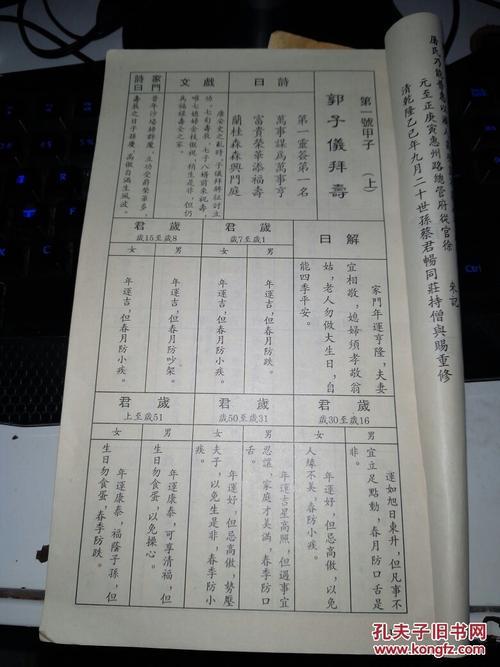 元至正庚寅惠州路總管府從官徐
清乾隆乙巳年九月二十世孫蔡君暢同莊持僧與賜重修
第一號甲子（上）
郭子儀拜壽
詩曰
第一靈簽第一名
萬事謀為萬事亨
富貴榮華添福壽
蘭桂森森興門庭
戲文
唐安史之亂時，子儀拜將征討立
功，七旬壽辰，七子八婿前來祝壽，
唯七媳婦金枝傲視，稍生是非，但仍
為福祿壽全之家。
家門詩曰
昔年沙場，立功受爵榮華多，
壽辰之日子孫慶，高傲自滿生風波。
解曰
家門年運亨隆，夫妻
宜相敬，媳婦須孝敬翁
姑，老人勿做大生日，自
能四季平安。
君歲
歲7至歲1
男
年運吉，但春月防跌。
女
年運吉，但春月防小疾。
君歲
歲15至歲8
男
年運吉，但春月防吵架。
女
年運吉，但春月防小疾。
君歲
歲30至歲16
男
運如旭日東升，但凡事不
宜立足點動，春月防口舌是
非。
女
年運好，但忌高傲，以免
人緣不美，春防小疾。
君歲
歲50至歲31
男
年運吉星高照，但遇事宜
忍讓，家庭才美滿，春季防口
舌。
女
年運好，但忌高傲，勢壓
夫子，以免生是非，春季防小
疾。
君歲
上至歲51
男
年運康泰，可享清福，但
生日勿食蛋，以免操心。
女
年運康泰，福蔭子孫，但
生日勿食蛋，春季防跌。
孔夫子旧书网
www.kongfz.com